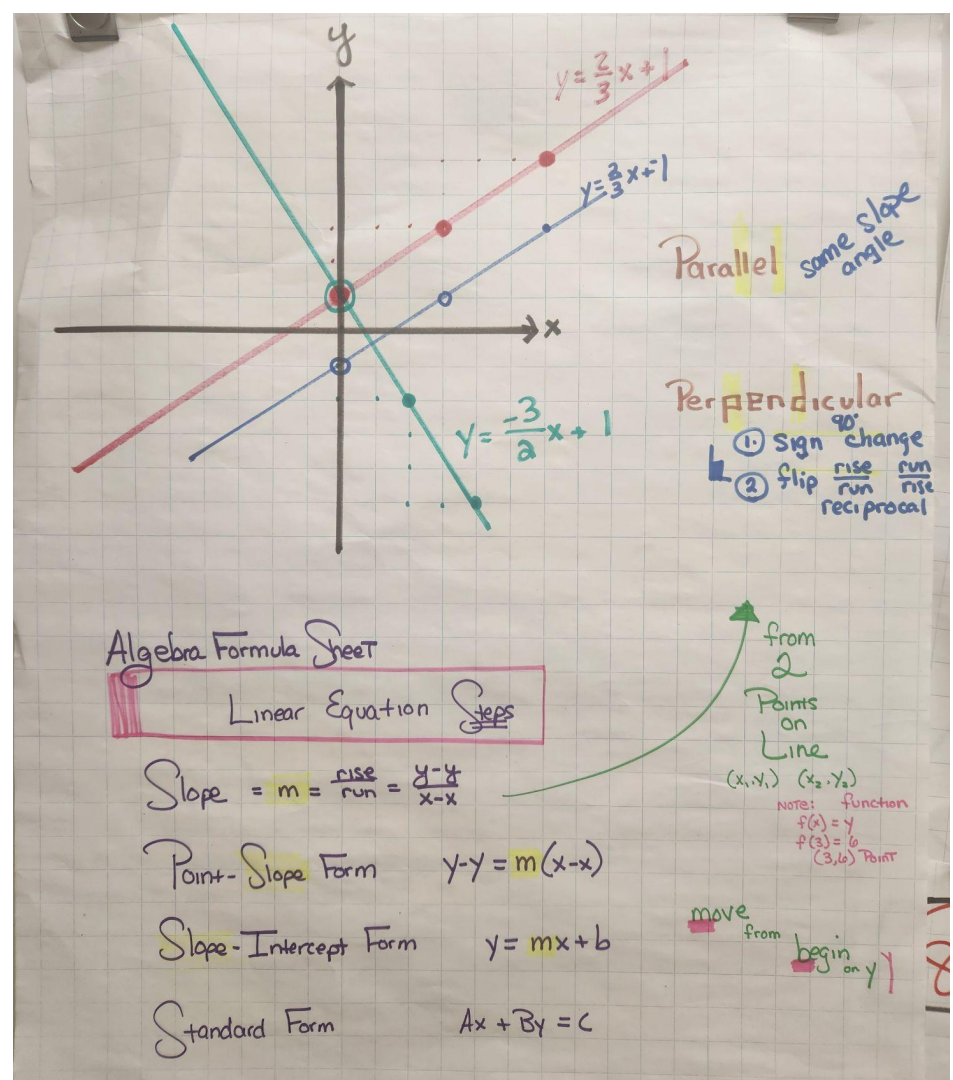 y
y = 2/3 x + 1
y = 2/3 x + -1
x
Parallel
same slope
angle
y = -3/2 x + 1
Perpendicular
90°
① sign change
② flip rise/run run/rise
reciprocal
Algebra Formula Sheet
Linear Equation Steps
Slope = m = rise/run = y-y/x-x
from
2
Points
on
Line
(x₁,y₁) (x₂,y₂)
NOTE: function
f(x) = y
f(3) = 6
(3,6) Point
Point-Slope Form y-y = m(x-x)
Slope-Intercept Form y = mx + b
move
from
begin
on y
Standard Form Ax + By = C